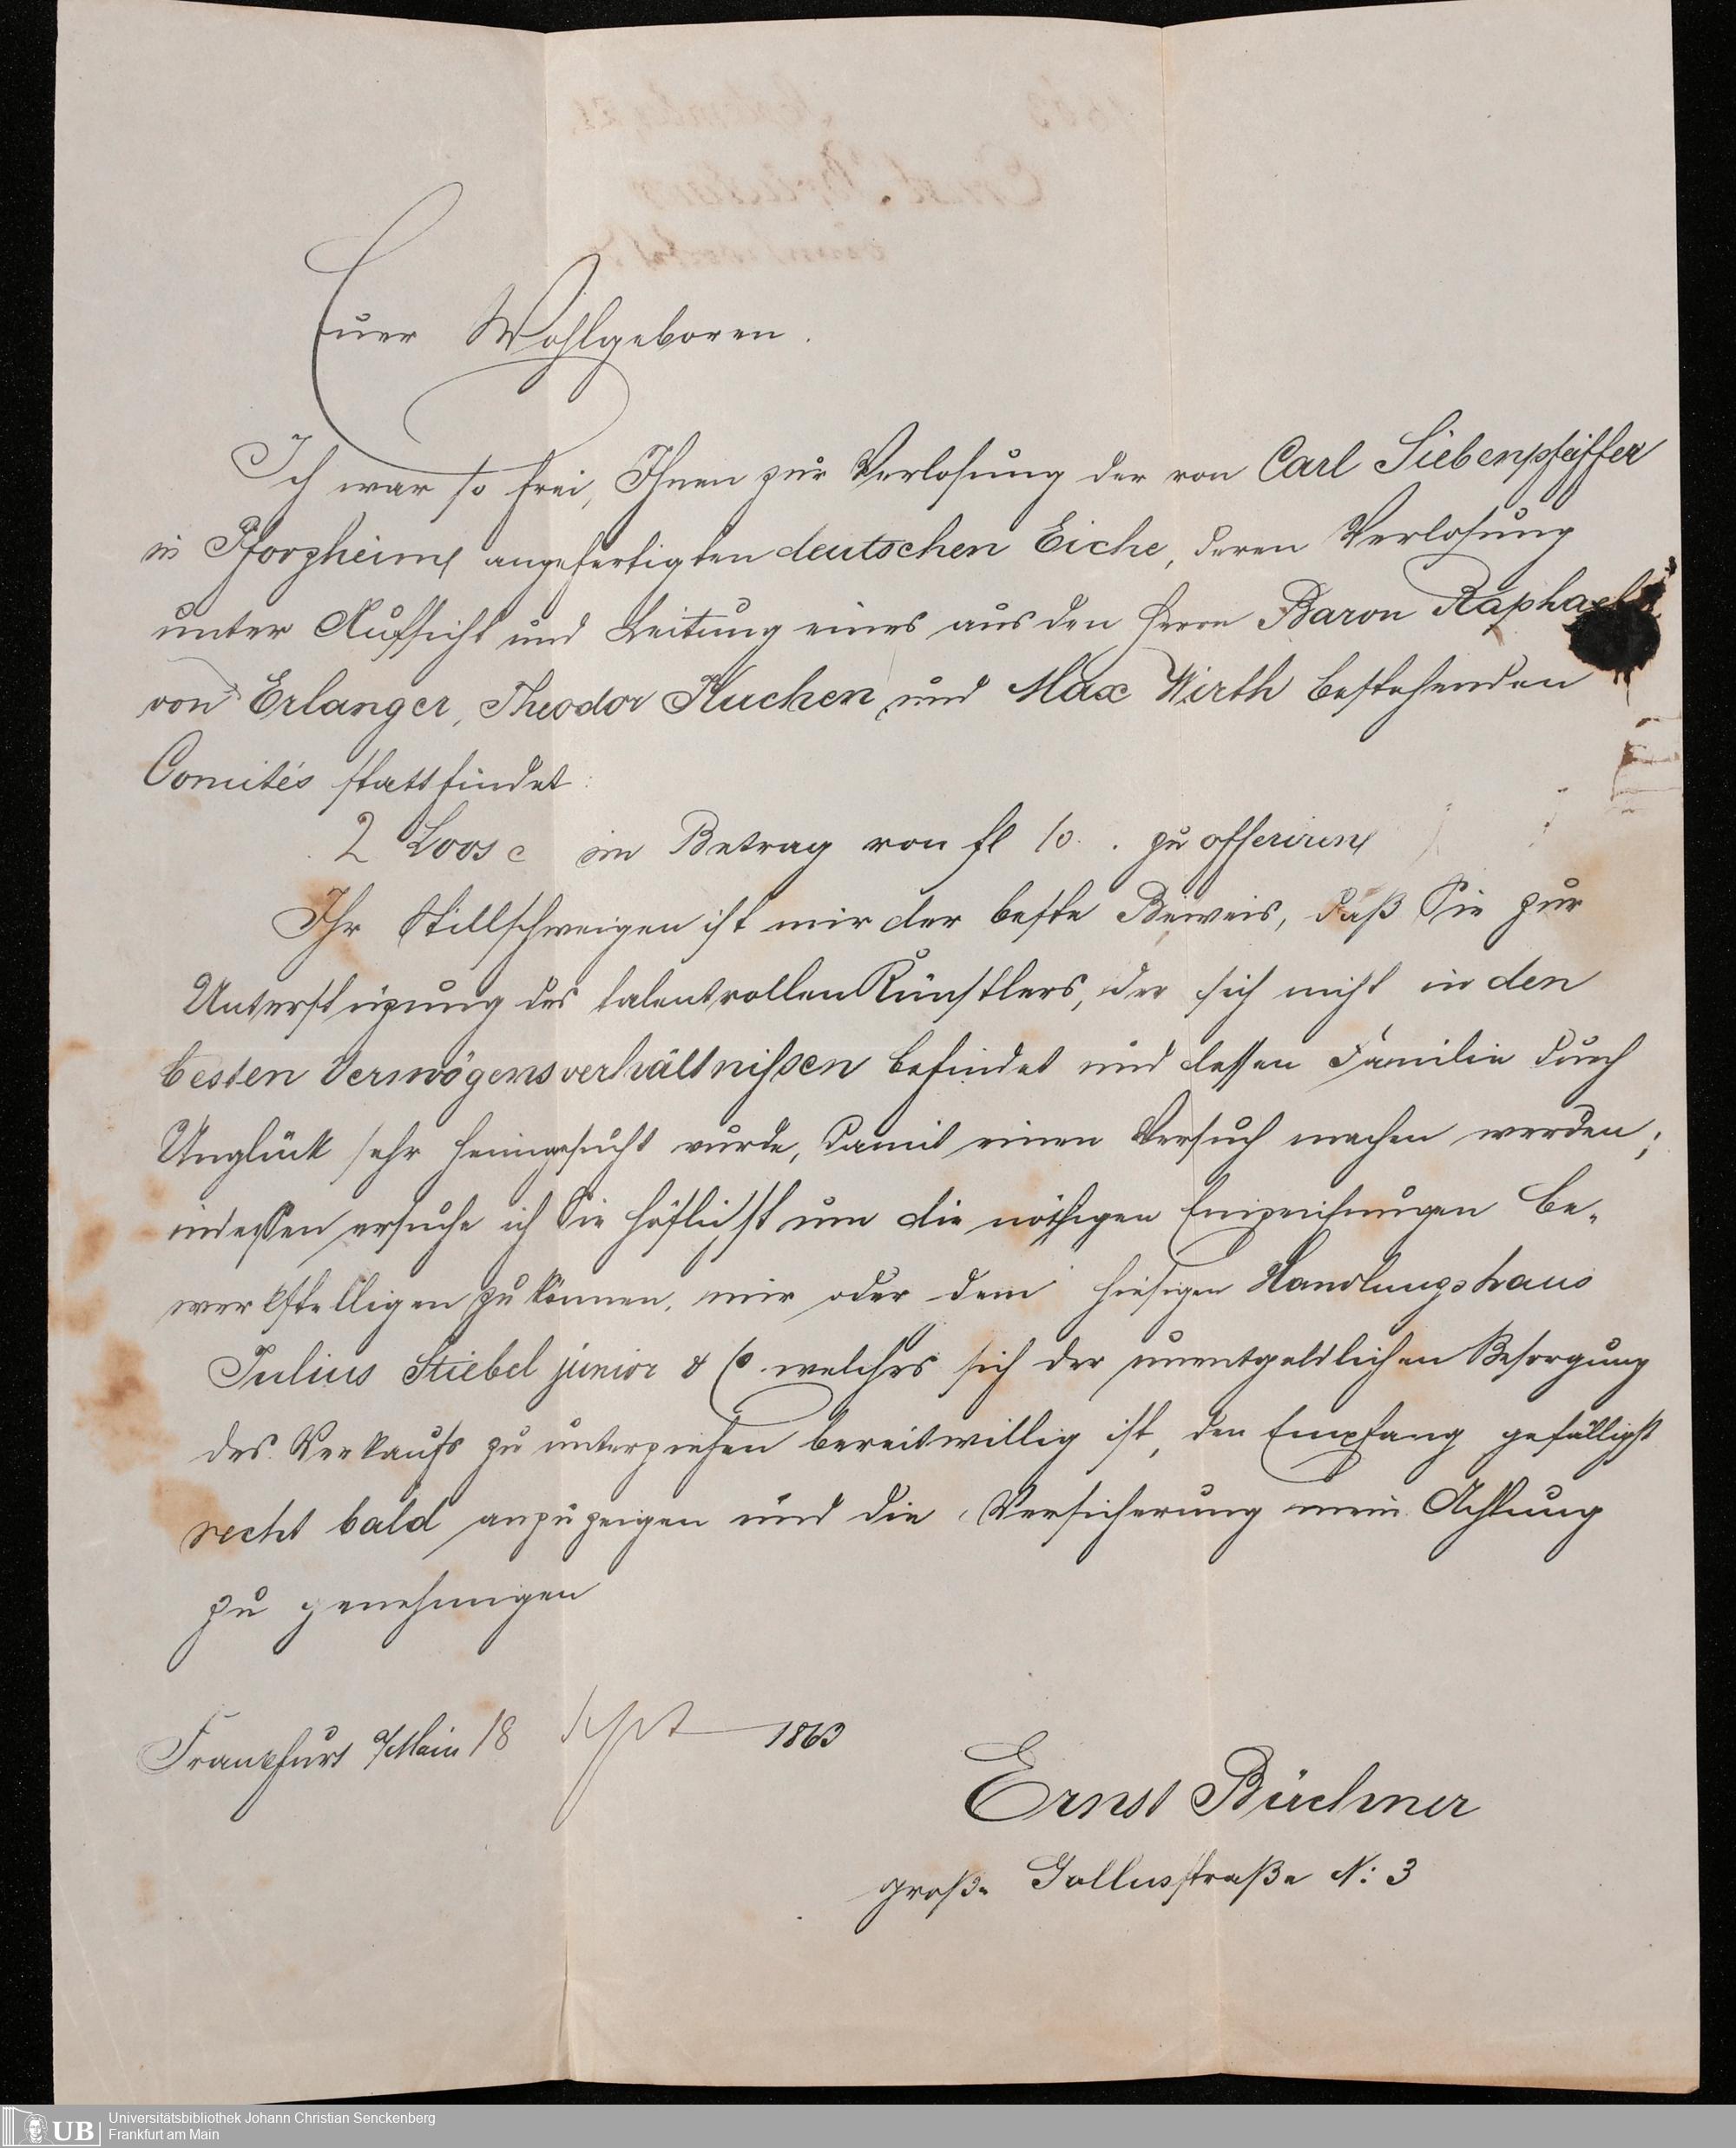 Euer Wohlgeboren.
Ich war so frei, Ihnen zur Verlosung der von Carl Siebenpfeiffer
in Pforzheim angefertigten deutschen Eiche, deren Verlosung
unter Aufsicht und Leitung eines aus den Herrn Baron Raphael
von Erlanger, Theodor Kuchen und Max Wirth bestehenden
Comités stattfindet:
2 Loose im Betrag von fl 10. . zu offeriren
Ihr Stillschweigen ist mir der beste Beweis, daß Sie zur
Unterstüzung des talentvollen Künstlers, der sich nicht in den
besten Vermögensverhältnißen befindet und dessen Familie durch
Unglück sehr heimgesucht wurde, damit einen Versuch machen werden;
indessen ersuche ich Sie höflichst um die nöthigen Einzeichnungen be-
werkstelligen zu können, mir oder dem hiesigen Handlungshaus
Julius Stiebel junior & Co welches sich der unentgeldlichen Besorgung
des Verkaufs zu unterziehen bereitwillig ist, den Empfang gefälligst
recht bald anzuzeigen und die Versicherung mein. Achtung
zu genehmigen
Frankfurt a/Main 18 Sept 1863
Ernst Büchner
große Gallusstraße N: 3
UB
Universitätsbibliothek Johann Christian Senckenberg
Frankfurt am Main